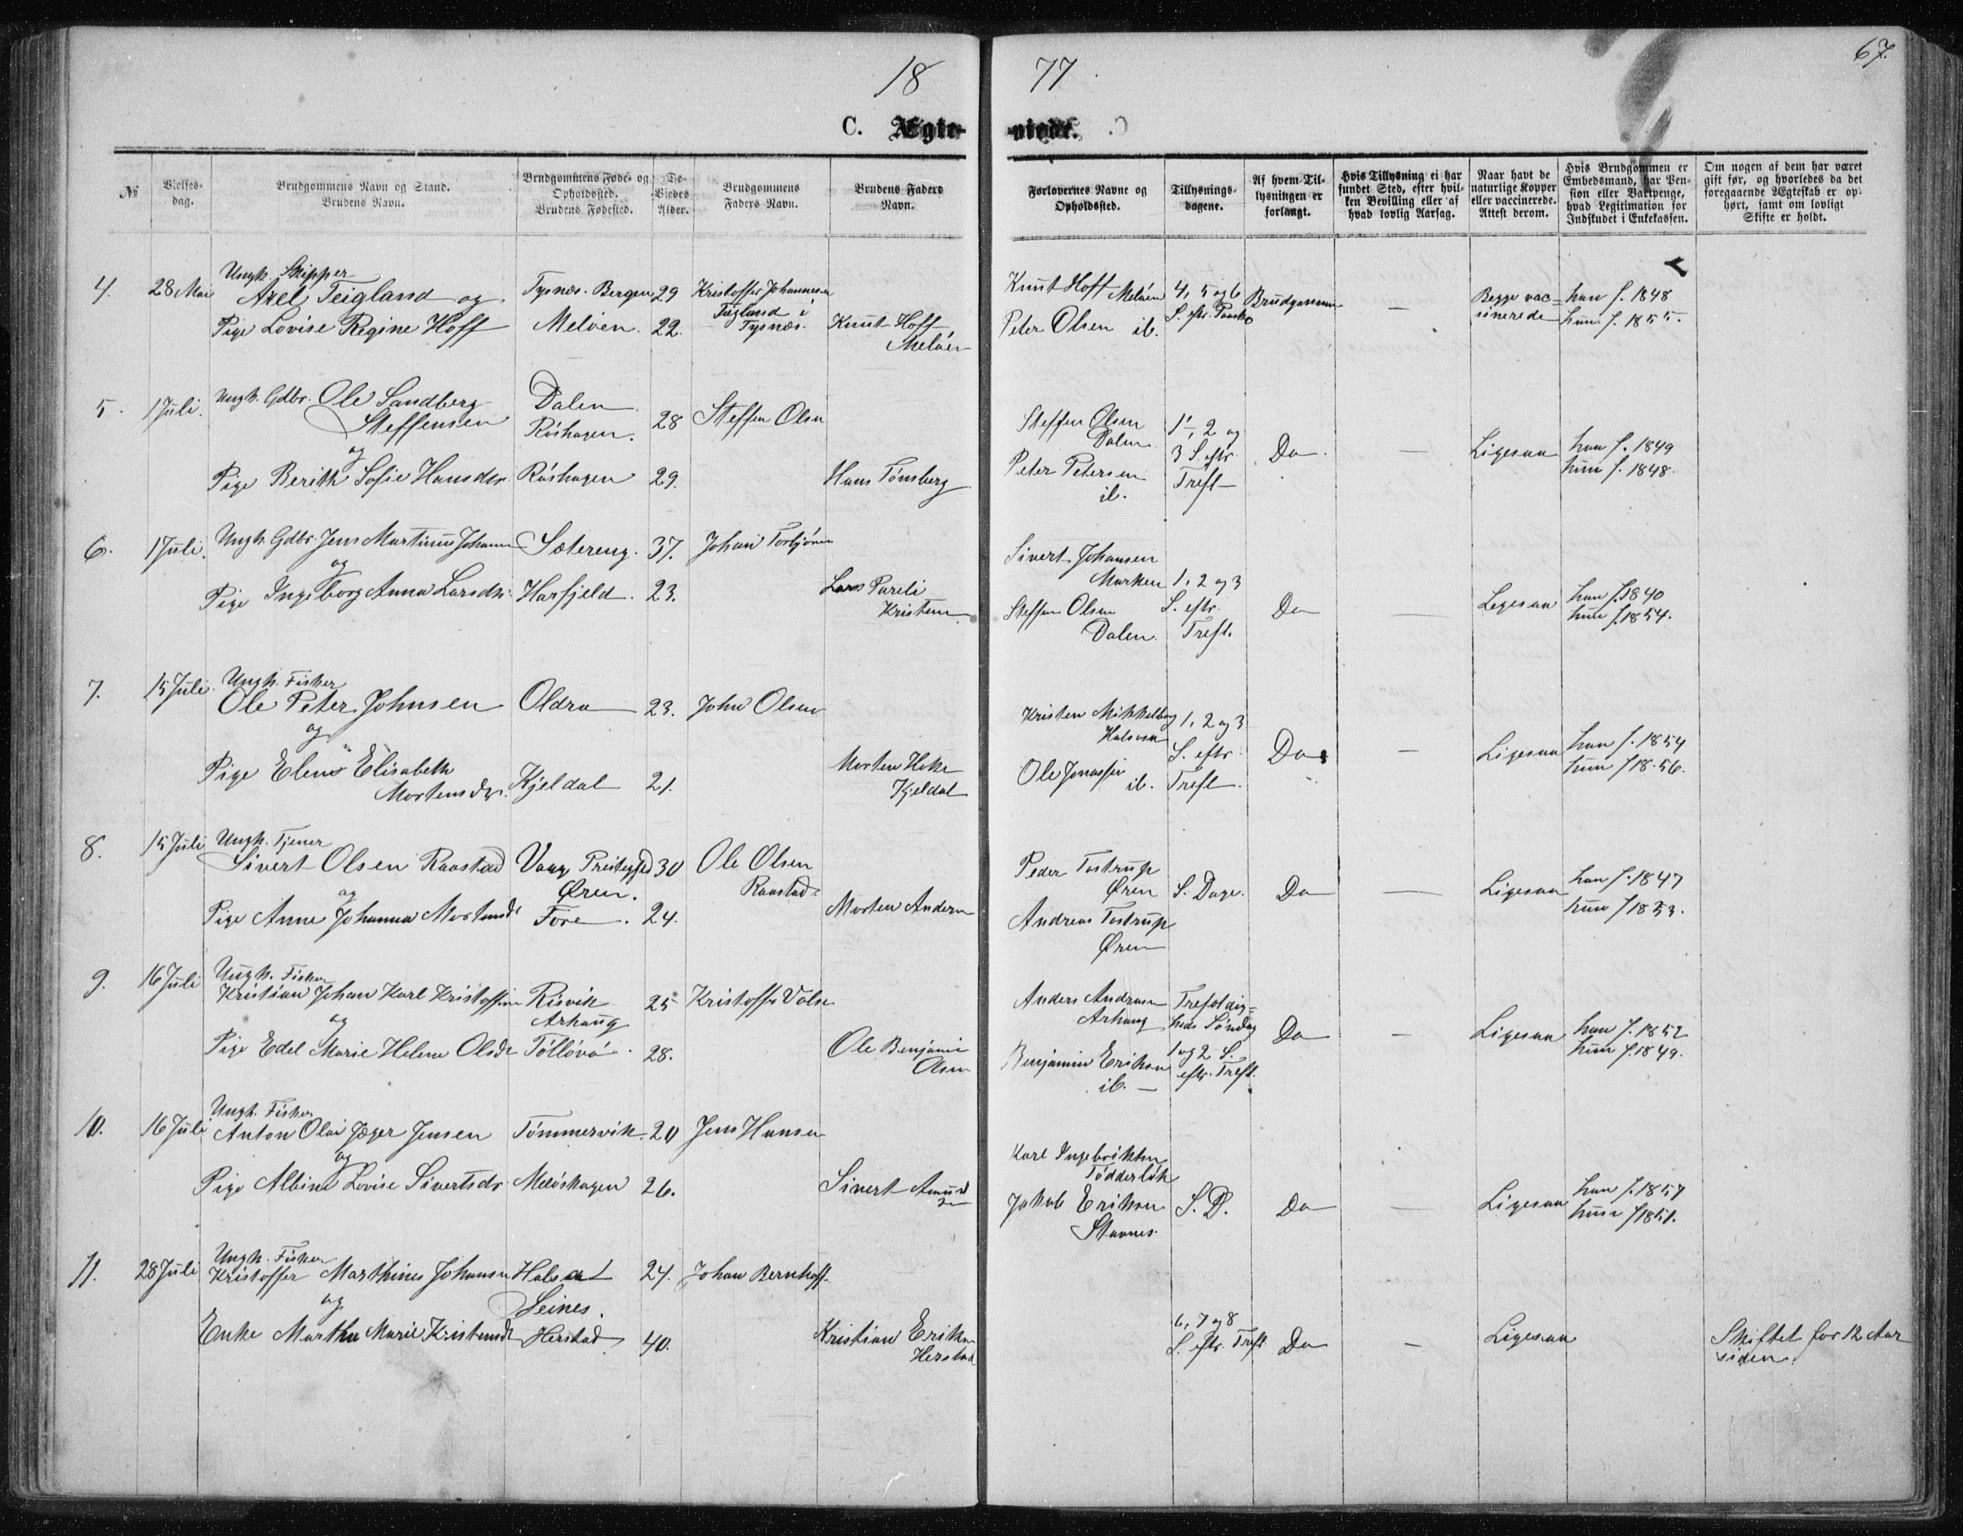 18 77
67.
C. Ægte- viede.
№
Vielses-
dag.
Brudgommens Navn og Stand.
Brudens Navn.
Brudgommens Føde- og
Opholdssted.
Brudens Fødested.
De
Viedes
Alder.
Brudgommens
Faders Navn.
Brudens Faders
Navn.
Forlovernes Navne og
Opholdssted.
Tillysnings-
dagene.
Af hvem Til-
lysningen er
forlangt.
Hvis Tillysning ei har
fundet Sted, efter hvil-
ken Bevilling eller af
hvad lovlig Aarsag.
Naar havt de
naturlige Kopper
eller vaccinerede.
Attest derom.
Hvis Brudgommen er
Embedsmand, har Pen-
sion eller Vartpenge,
hvad Legitimation for
Indskudet i Enkekassen.
Om nogen af dem har været
gift før, og hvorledes da det
foregaaende Ægteskab er op-
hørt, samt om lovligt
Skifte er holdt.
4. 28 Mai
Ungk. Skipper
Axel Teigland og
Pige Lovise Regine Hoff
Tysnæs. Bergen
Meløen.
29
22.
Kristoffer Johannesen
Teigland i
Tysnæs.
Knut Hoff
Meløen
Knut Hoff Meløen
Peter Olsen ib.
4, 5 og 6
S. eftr. Paaske
Brudgommen
—
Begge vac-
sinerede
han f. 1848
hun f. 1855.
5. 1 Juli.
Ungk. Gdbr. Ole Sandberg
Steffensen
og
Pige Berith Sofie Hansdtr
Dalen
Røshagen.
Røshagen
28
29.
Steffen Olsn
Hans Tønsberg
Steffen Olsen
Dalen
Peter Petersen
ib.
1, 2 og
3 S. eftr
Tref.
Do
—
Ligesaa
han f. 1849
hun f. 1848.
6. 1 Juli.
Ungk. Gdbr. Jens Martinus Johansn
og
Pige Ingeborg Anna Larsdtr.
Sætereng.
Harfjeld.
37.
23.
Johan Torbjørn
Lars Pareli
Kristens
Sivert Johansen
Marken
Steffen Olsen
Dalen.
1, 2 og 3
S. eftr.
Tref.
Do
—
Ligesaa
han f. 1840
hun f. 1854.
7. 15 Juli.
Ungk. Fisker
Ole Peter Johnsen
og
Pige Elen Elisabeth
Mortensdtr.
Oldra
Kjeldal
23.
21.
John Olsen
Morten Hoke
Kjeldal
Kristen Mikkelborg
Halsaa
Ole Jonassen
ib.
1, 2 og 3
S. eftr.
Tref.
Do
—
Ligesaa
han f. 1854
hun f 1856.
8. 15 Juli
Ungk. Tjener
Sivert Olsen Raastad
og
Pige Anne Johanna Mortensdt
Vaag Prestegjeld
Øren.
Fore.
30
24.
Ole Olsen
Raastad
Morten Andersn
Peder Tostrup
Øren
Andreas Tostrup
Øren
S. Dage.
Do
—
Ligesaa
han f. 1847
hun f 1853.
9. 16 Juli
Ungk. Fisker
Kristian Johan Karl Kristoffersn
og
Pige Edel Marie Helene Olsdt
Risvik
Arhaug
Tølløvå.
25
28.
Kristoffer Vols
Ole Benjamin
Olsen
Anders Andersen
Arhaug
Benjamin Eriksen
ib. —
Trefoldig-
heds Søndag
1 og 2 S.
eftr. Tref.
Do
—
Ligesaa
han f. 1852
hun f. 1849.
10. 16 Juli
Ungk. Fisker
Anton Olai Jæger Jensen
og
Pige Albine Lovise Sivertsdr
Tømmervik.
Meløshagen
20
26.
Jens Hansen
Sivert Amund
sen
Karl Ingebrikten
Tødderlik
Jakob Eriksen
Stavnes.
S. D.
Do
—
Ligesaa
han f. 1857
hun f 1851.
11. 28 Juli
Ungk. Fisker
Kristoffer Marthines Johansen
og
Enke Martha Marie Kristensdt
Halsa
Seines.
Herstad
24.
40.
Johan Bernhoff.
Kristian Eriksn
Herstad
6, 7 og 8
S. eftr. Tref.
Do
—
Ligesaa
Skiftet for 12 Aar
siden.